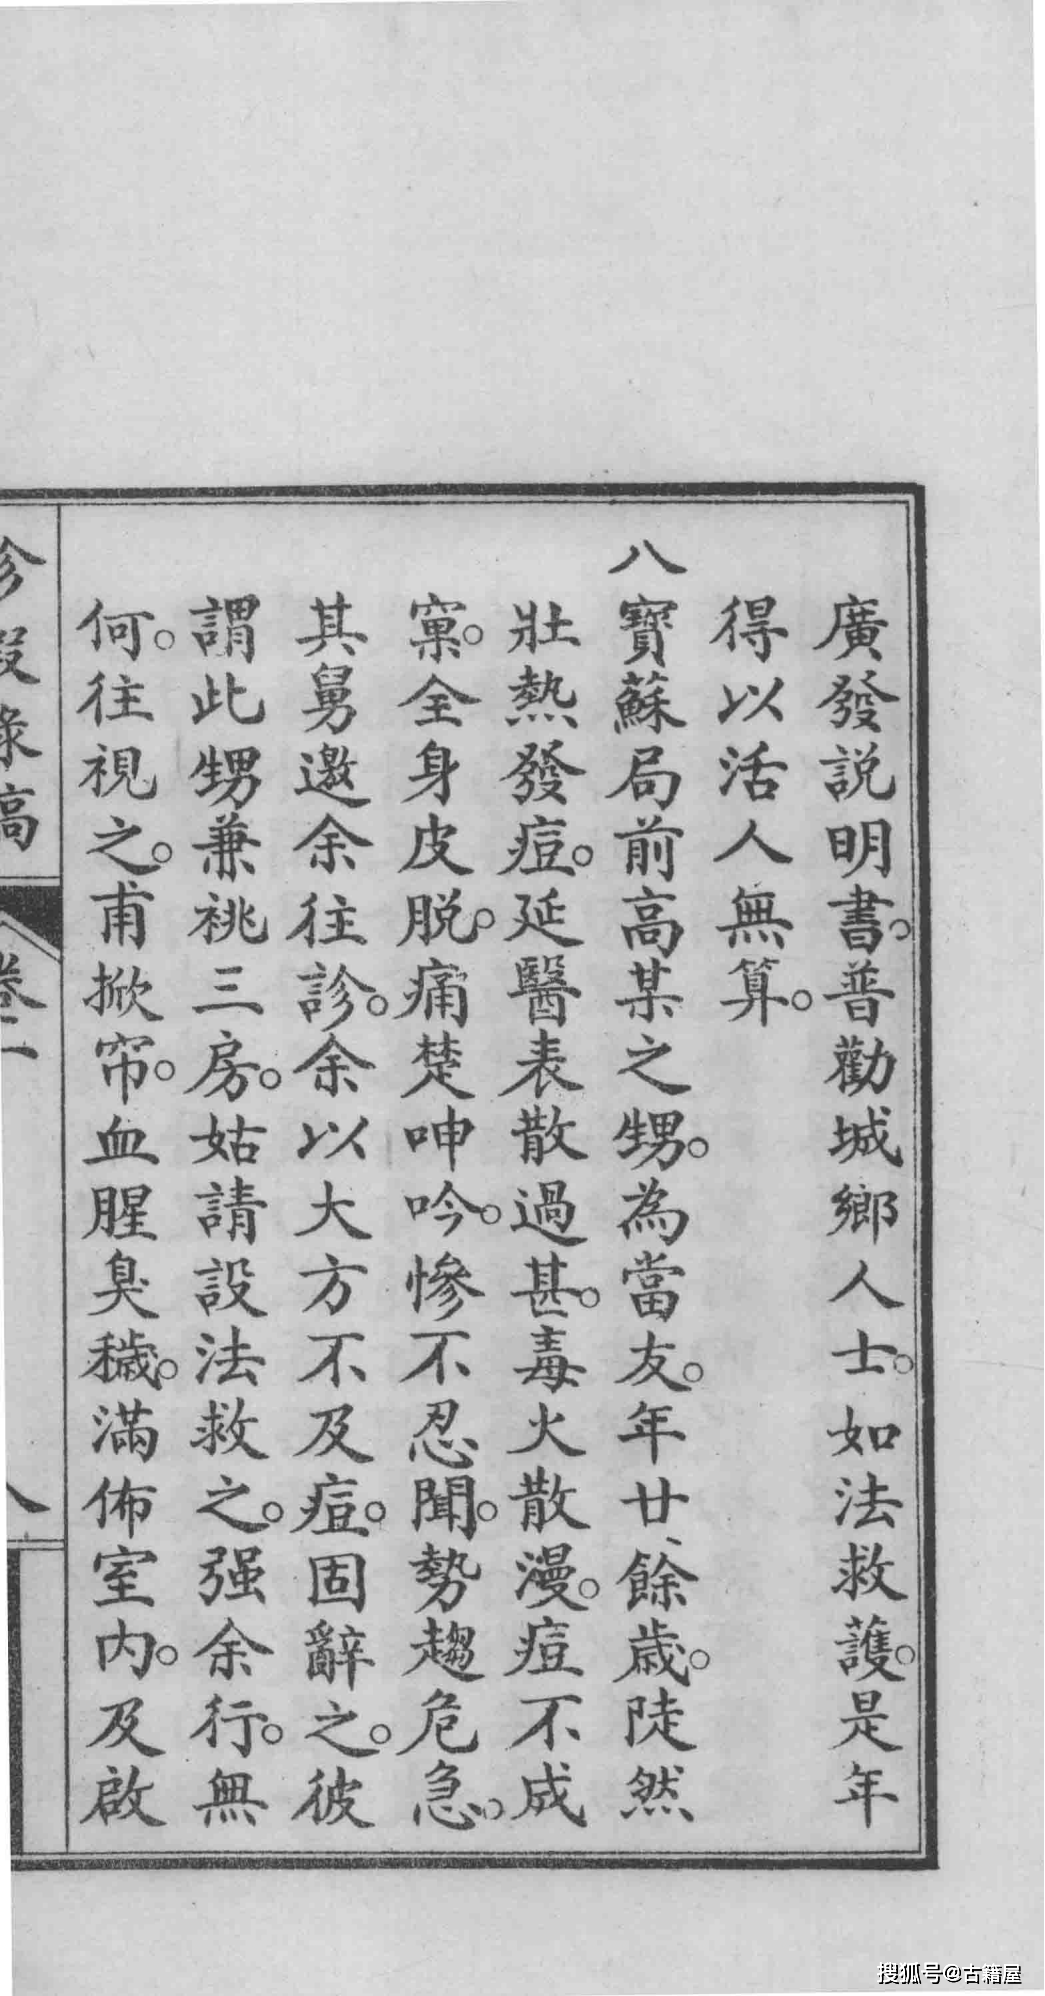 廣發説明書。普勸城鄉人士。如法救護。是年
得以活人無算。
八寳蘇局前高某之甥。為當友。年廿、餘歲。陡然
壯熱發痘。延醫表散過甚。毒火散漫。痘不成
窠。全身皮脱。痛楚呻吟。慘不忍聞。勢趨危急。
其舅邀余往診。余以大方不及痘。固辭之。彼
謂此甥兼祧三房。姑請設法救之。强余行。無
何。往視之。甫掀帘。血腥臭穢。滿佈室内。及啟
診餘錄稿
卷一
八
搜狐号@古籍屋